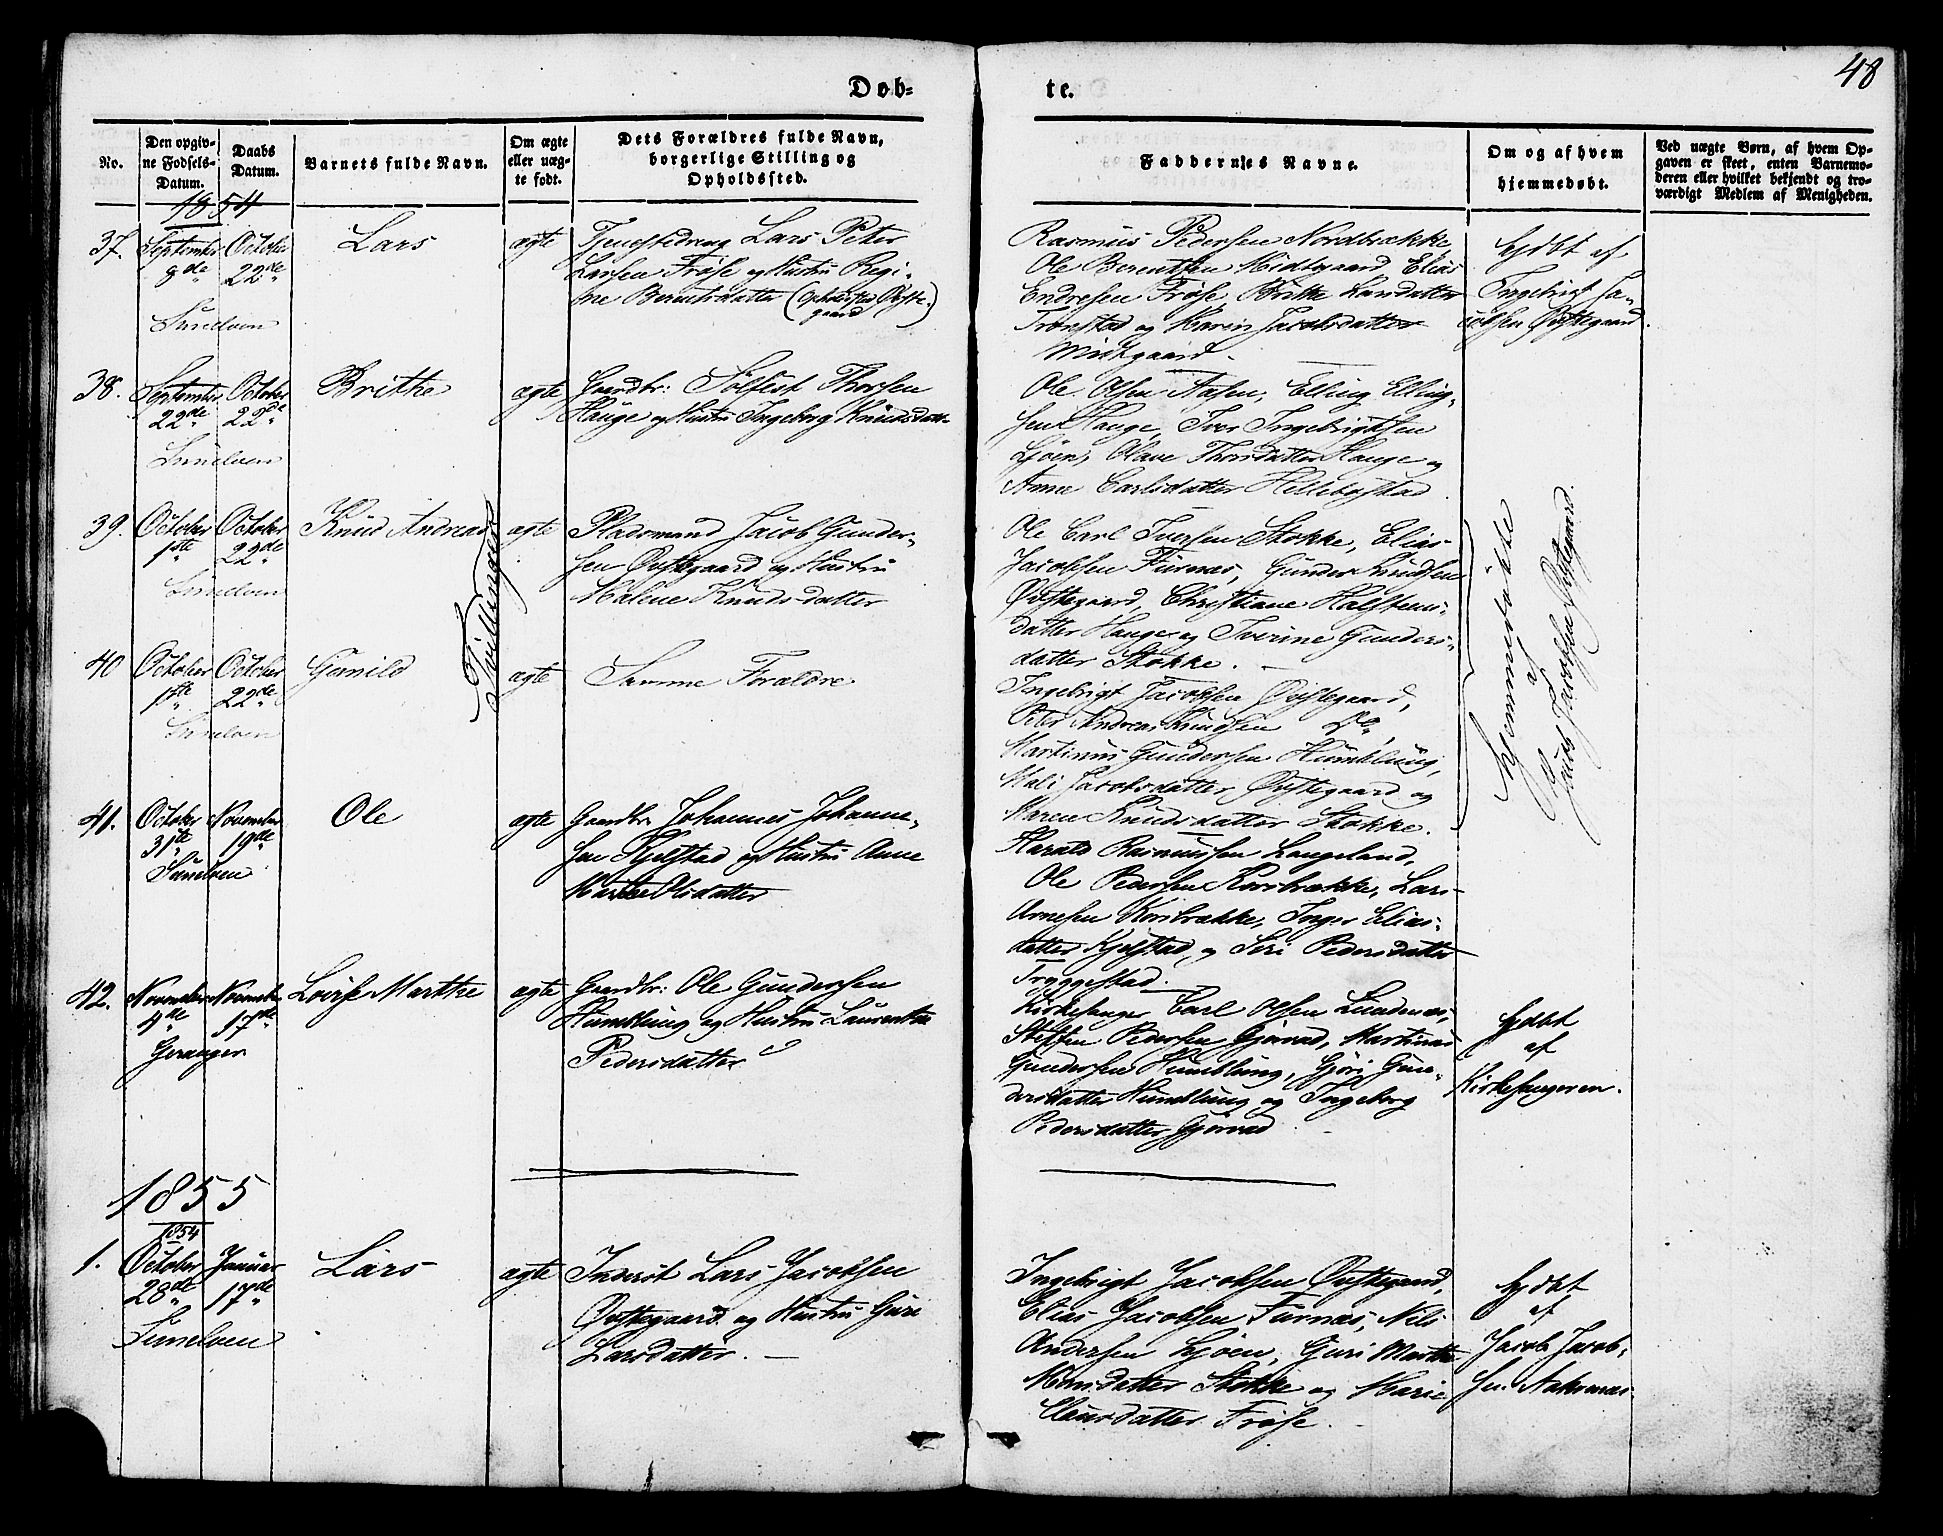 48
Døb-
te.
No.
Den opgiv-
ne Fødsels-
Datum.
Daabs
Datum.
Barnets fulde Navn.
Om ægte
eller uæg-
te født.
Dets Forældres fulde Navn,
borgerlige Stilling og
Opholdssted.
Faddernes Navne.
Om og af hvem
hjemmedøbt.
Ved uægte Børn, af hvem Op-
gaven er skeet, enten Barnemo-
deren eller hvilket bekjendt og tro-
værdigt Medlem af Menigheden.
1854
37.
September
8de
Sunelven
October
22de
Lars
ægte
Tjenestedreng Lars Peter
Larsen Frøse og Hustru Regi-
ne Berntsdatter (Opholdssted Øvste-
gaard)
Rasmus Pedersen Nordbrække,
Ole Berentsen Midtgaard, Elias
Endresen Frøse, Brithe Larsdatter
Tronstad og Karen Jacobsdatter
Midtgaard.
hjdbt af
Ingebrigt Ja-
cobsen Øvstegaard.
38.
September
22de
Sunelven
October
22de
Brithe
ægte
Gaardbr: Sølfest Thorsen
Hauge og Hustru Ingeborg Knudsdatt.
Ole Olsen Aasen, Elling Elling-
sen Hauge, Iver Ingebrigtsen
Ljøen, Olave Thorsdatter Hauge og
Anne Carlsdatter Hellebostad
39.
October
1ste
Sunelven
October
22de
Knud Andreas
Tvillinger
ægte
Pladsmand Jacob Gunder-
sen Øvstegaard og Hustru
Malene Knudsdatter
Ole Carl Iversen Stokke, Elias
Jacobsen Furnæs, Gunder Knudsen
Øvstegaard, Christiane Halstens-
datter Hauge og Iverine Gunders-
datter Stokke.
hjemmedøbte
af
Jacob Jacobsen Øvstegaard.
40
October
1ste
Sunelven
October
22de
Gunild
ægte
Samme Forældre
Ingebrigt Jacobsen Øvstegaard,
Peter Andreas Knudsen do,
Martinus Gundersen Humlung,
Mali Jacobsdatter Øvstegaard og
Maren Knudsdatter Stokke.
41.
October
31te
Sunelven
November
19de
Ole
ægte
Gaardbr. Johannes Johanne-
sen Kjelstad og Hustru Anne
Marthe Olsdatter
Harald Rasmussen Langeland,
Ole Pedersen Korsbrække, Lars
Arnesen Korsbrække, Inger Elias-
datter Kjelstad, og Siri Pedersdatter
Tryggestad.
42.
November
4de
Geranger
November
17de
Lovise Marthe
ægte
Gaardbr: Ole Gundersen
Humlung og Hustru Laurentse
Pedersdatter
Kirkesanger Carl Olsen Lundenæs,
Steffen Pedersen Gjørvad, Martinus
Gundersen Humblung, Gjøri Gun-
dersdatter Humlung og Ingeborg
Pedersdatter Gjørvad.
hjdbt
af
Kirkesangeren.
1855
1.
1854
October
28de
Sunelven
Januar
17de
Lars
ægte
Inderst Lars Jacobsen
Øvstegaard og Hustru Guri
Larsdatter.
Ingebrigt Jacobsen Øvstegaard,
Elias Jacobsen Furnæs, Nils
Andersen Ljøen, Guri Marthe
Monsdatter Stokke og Marie
Clausdatter Frøse.
hjdbt
af
Jacob Jacob-
sen Aakernæs.